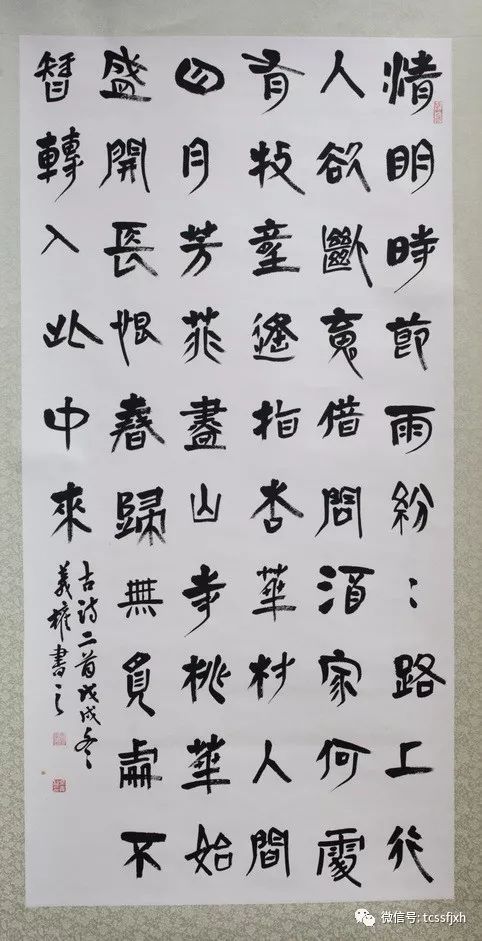 清明時節雨紛〻路上行
人欲斷魂借問酒家何處
有牧童遙指杏華村人間
四月芳菲盡山寺桃華始
盛開長恨春歸無覓處不
智轉入此中來
古詩二首戊戌冬
義權書之
微信号: tcssfjxh